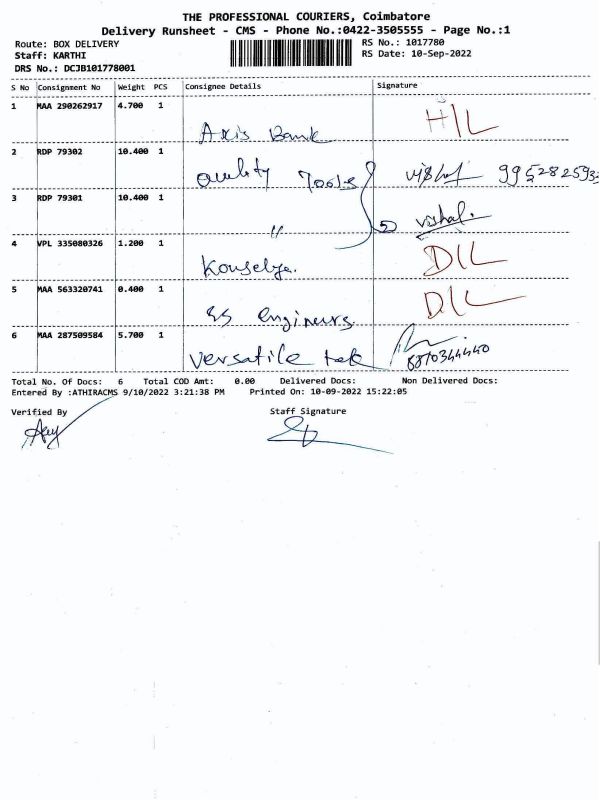 THE PROFESSIONAL COURIERS, Coimbatore
Delivery Runsheet - CMS - Phone No.:0422-3505555 - Page No.:1
Route: BOX DELIVERY RS No.: 1017780
Staff: KARTHI RS Date: 10-Sep-2022
DRS No.: DCJB101778001
S No Consignment No Weight PCS Consignee Details Signature
1 MAA 290262917 4.700 1
Axis Bank H/L
2 RDP 79302 10.400 1
Quality Tools
3 RDP 79301 10.400 1
" vishal.
4 VPL 335080326 1.200 1
D/L
5 MAA 563320741 0.400 1
SS engineers D/L
6 MAA 287509584 5.700 1
versatile tek
Total No. Of Docs: 6 Total COD Amt: 0.00 Delivered Docs: Non Delivered Docs:
Entered By :ATHIRACMS 9/10/2022 3:21:38 PM Printed On: 10-09-2022 15:22:05
Verified By Staff Signature